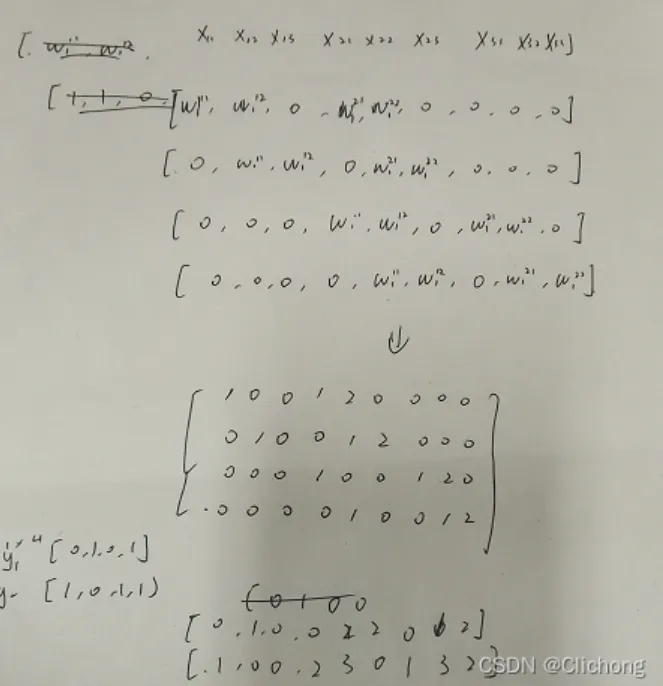 [ w₁¹¹, w₁¹²,
X₁₁ X₁₂ X₁₃ X₂₁ X₂₂ X₂₃ X₃₁ X₃₂ X₃₃]
[1, 1, 0,
[w₁¹¹, w₁¹², 0, w₁²¹, w₁²², 0, 0, 0, 0]
[0, w₁¹¹, w₁¹², 0, w₁²¹, w₁²², 0, 0, 0]
[0, 0, 0, w₁¹¹, w₁¹², 0, w₁²¹, w₁²², 0]
[0, 0, 0, 0, w₁¹¹, w₁¹², 0, w₁²¹, w₁²²]
⇓
1 0 0 1 2 0 0 0 0
0 1 0 0 1 2 0 0 0
0 0 0 1 0 0 1 2 0
0 0 0 0 1 0 0 1 2
[0,1,0,1]
[1,0,1,1)
[0 1 0 0
[0,1,0,0 2 2 0 2]
[1,0 0 2 3 0 1 3 2]
CSDN @Clichong